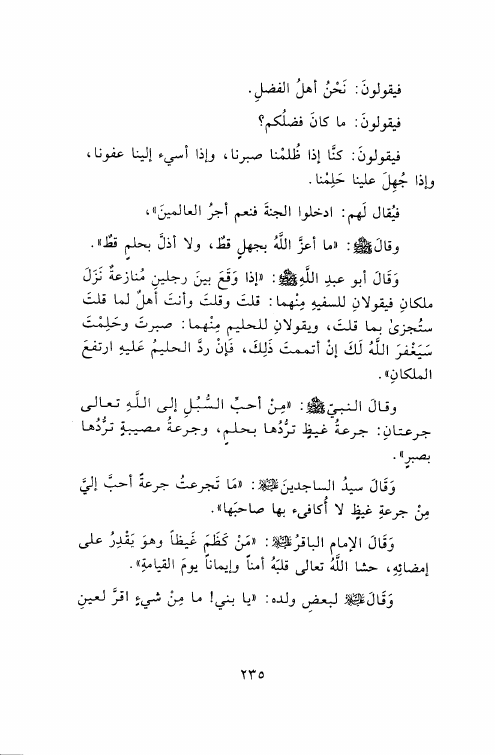 فيقولونَ: نَحْنُ أهلُ الفضلِ.
فيقولونَ: ما كانَ فضلُكم؟
فيقولونَ: كنَّا إذا ظُلمْنا صبرنا، وإذا أسيء إلينا عفونا،
وإذا جُهِلَ علينا حَلِمْنا.
فيُقال لَهم: ادخلوا الجنةَ فنعم أجرُ العالمينَ»،
وقالَ ﷺ: «ما أعزَّ اللَّهُ بجهلٍ قطُّ، ولا أذلَّ بحلمٍ قطُّ».
وَقَالَ أبو عبدِ اللَّهِ ﷺ: «إذا وَقَعَ بينَ رجلينِ مُنازعةٌ نَزَلَ
ملكانِ فيقولانِ للسفيهِ مِنْهما: قلتَ وقلتَ وأنتَ أهلٌ لما قلتَ
ستُجزىٰ بما قلتَ، ويقولانِ للحليمِ مِنْهما: صبرتَ وحَلِمْتَ
سَيَغْفرَ اللَّهُ لَكَ إنْ أتممتَ ذَلِكَ، فَإنْ ردَّ الحليمُ عَليهِ ارتفعَ
الملكانِ».
وقالَ النبيّ ﷺ: «مِنْ أحبِّ السُّبُلِ إلى اللَّهِ تعالى
جرعتانِ: جرعةُ غيظٍ تردُّها بحلمٍ، وجرعةُ مصيبةٍ تردُّها
بصبرٍ».
وَقَالَ سيدُ الساجدينَ عليه السلام: «مَا تَجرعتُ جرعةً أحبَّ إليَّ
مِنْ جرعةِ غيظٍ لا أُكافىء بها صاحبَها».
وَقَالَ الإمام الباقرُ عليه السلام: «مَنْ كَظَمَ غَيظاً وهوَ يَقْدِرُ على
إمضائِهِ، حشا اللَّهُ تعالى قلبَهُ أمناً وإيماناً يومَ القيامةِ».
وَقَالَ عليه السلام لبعضِ ولده: «يا بني! ما مِنْ شيءٍ اقرَّ لعينِ
٢٣٥